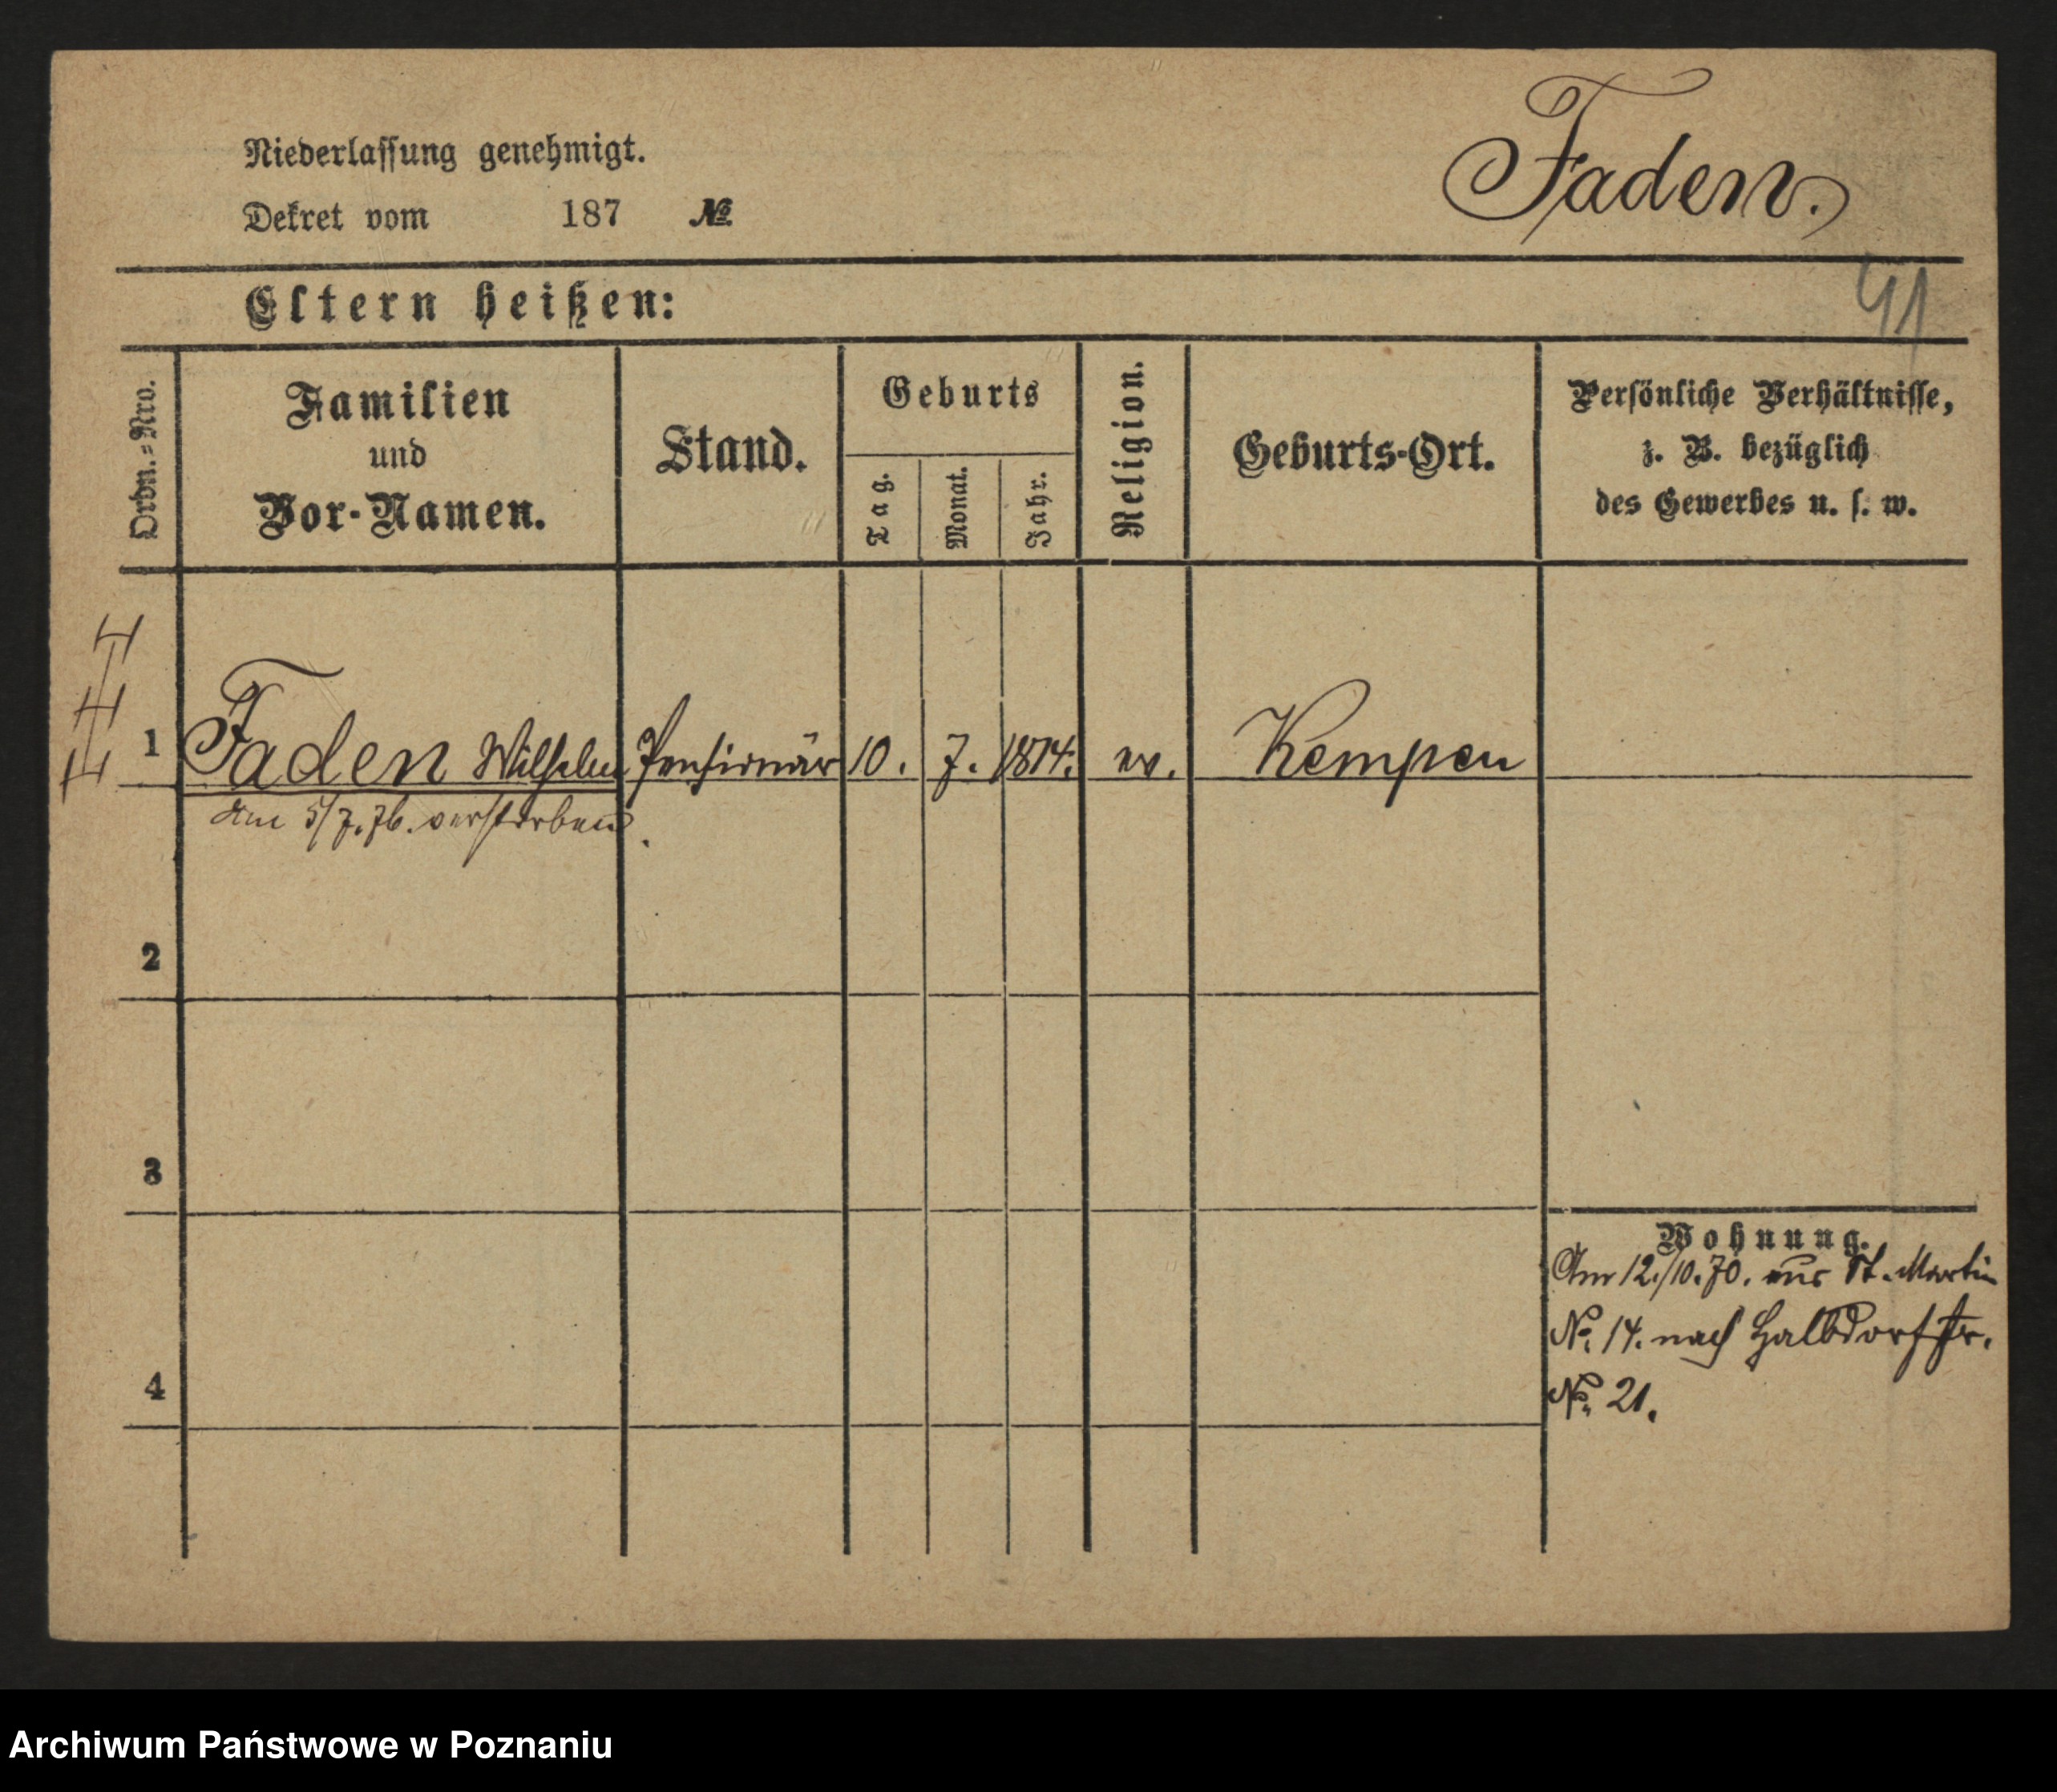 Niederlassung genehmigt.
Dekret vom 187 №
Faden.
Eltern heißen:
41
Ordn.-Nro.
Familien
und
Vor-Namen.
Stand.
Geburts
Tag.
Monat.
Jahr.
Religion.
Geburts-Ort.
Persönliche Verhältnisse,
z. B. bezüglich
des Gewerbes u. s. w.
1 Faden Wilhelm Pensionär 10. 7. 1814. ev. Kempen
Am 5/7.76. verstorben.
2
3
4
Wohnung.
Am 12./10.70. aus St. Martin
No. 14. nach Halbdorfstr.
No. 21.
Archiwum Państwowe w Poznaniu